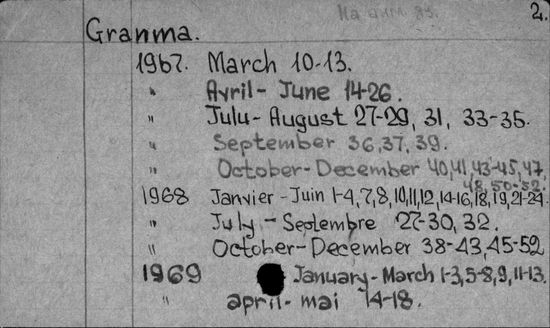 2.
Granma.
1967. March 10-13.
" Avril - June 14-26.
" Julu - August 27-29, 31, 33-35.
" September 36,37,39.
" October-December 40,41,43-45,47,
48,50-52.
1968 Janvier - Juin 1-4,7,8,10,11,12,14-16,18,19,21-24.
" July - Septembre 27-30, 32.
" October-December 38-43,45-52
1969 January-March 1-3,5-8,9,11-13.
" april - mai 14-18.